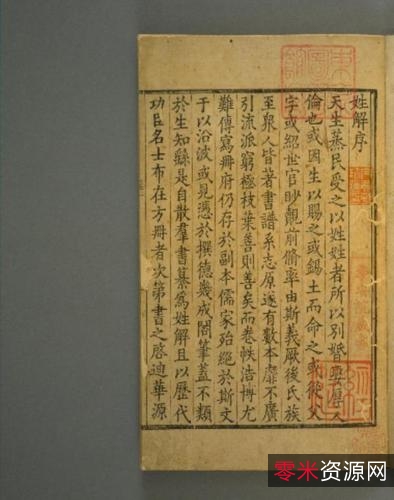 姓解序
天生蒸民受之以姓姓者所以別婚
倫也或因生以賜之或錫土而命之或從父
字或紹世官眇覿前脩率由斯義厥後氏族
至衆人皆著書譜系志原遂有數本靡不廣
引流派窮極枝葉善則善矣而卷帙浩博尤
難傳寫冊府仍存於副本儒家殆絕於斯文
于以沿波或見憑於撰德幾成閣筆蓋不類
於生知繇是自散羣書纂爲姓解且以歷代
功臣名士布在方冊者次第書之啓迪華源
零米资源网